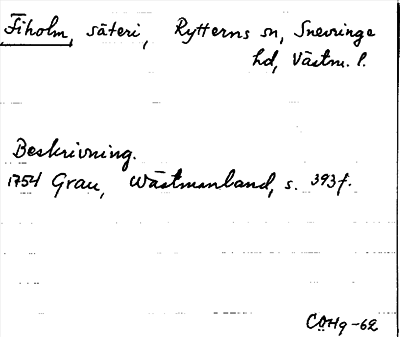 Fiholm, säteri, Rytterns sn, Snevringe
hd, Västm. l.
Beskrivning.
1754 Grau, Wästmanland, s. 393f.
CÖHg-62